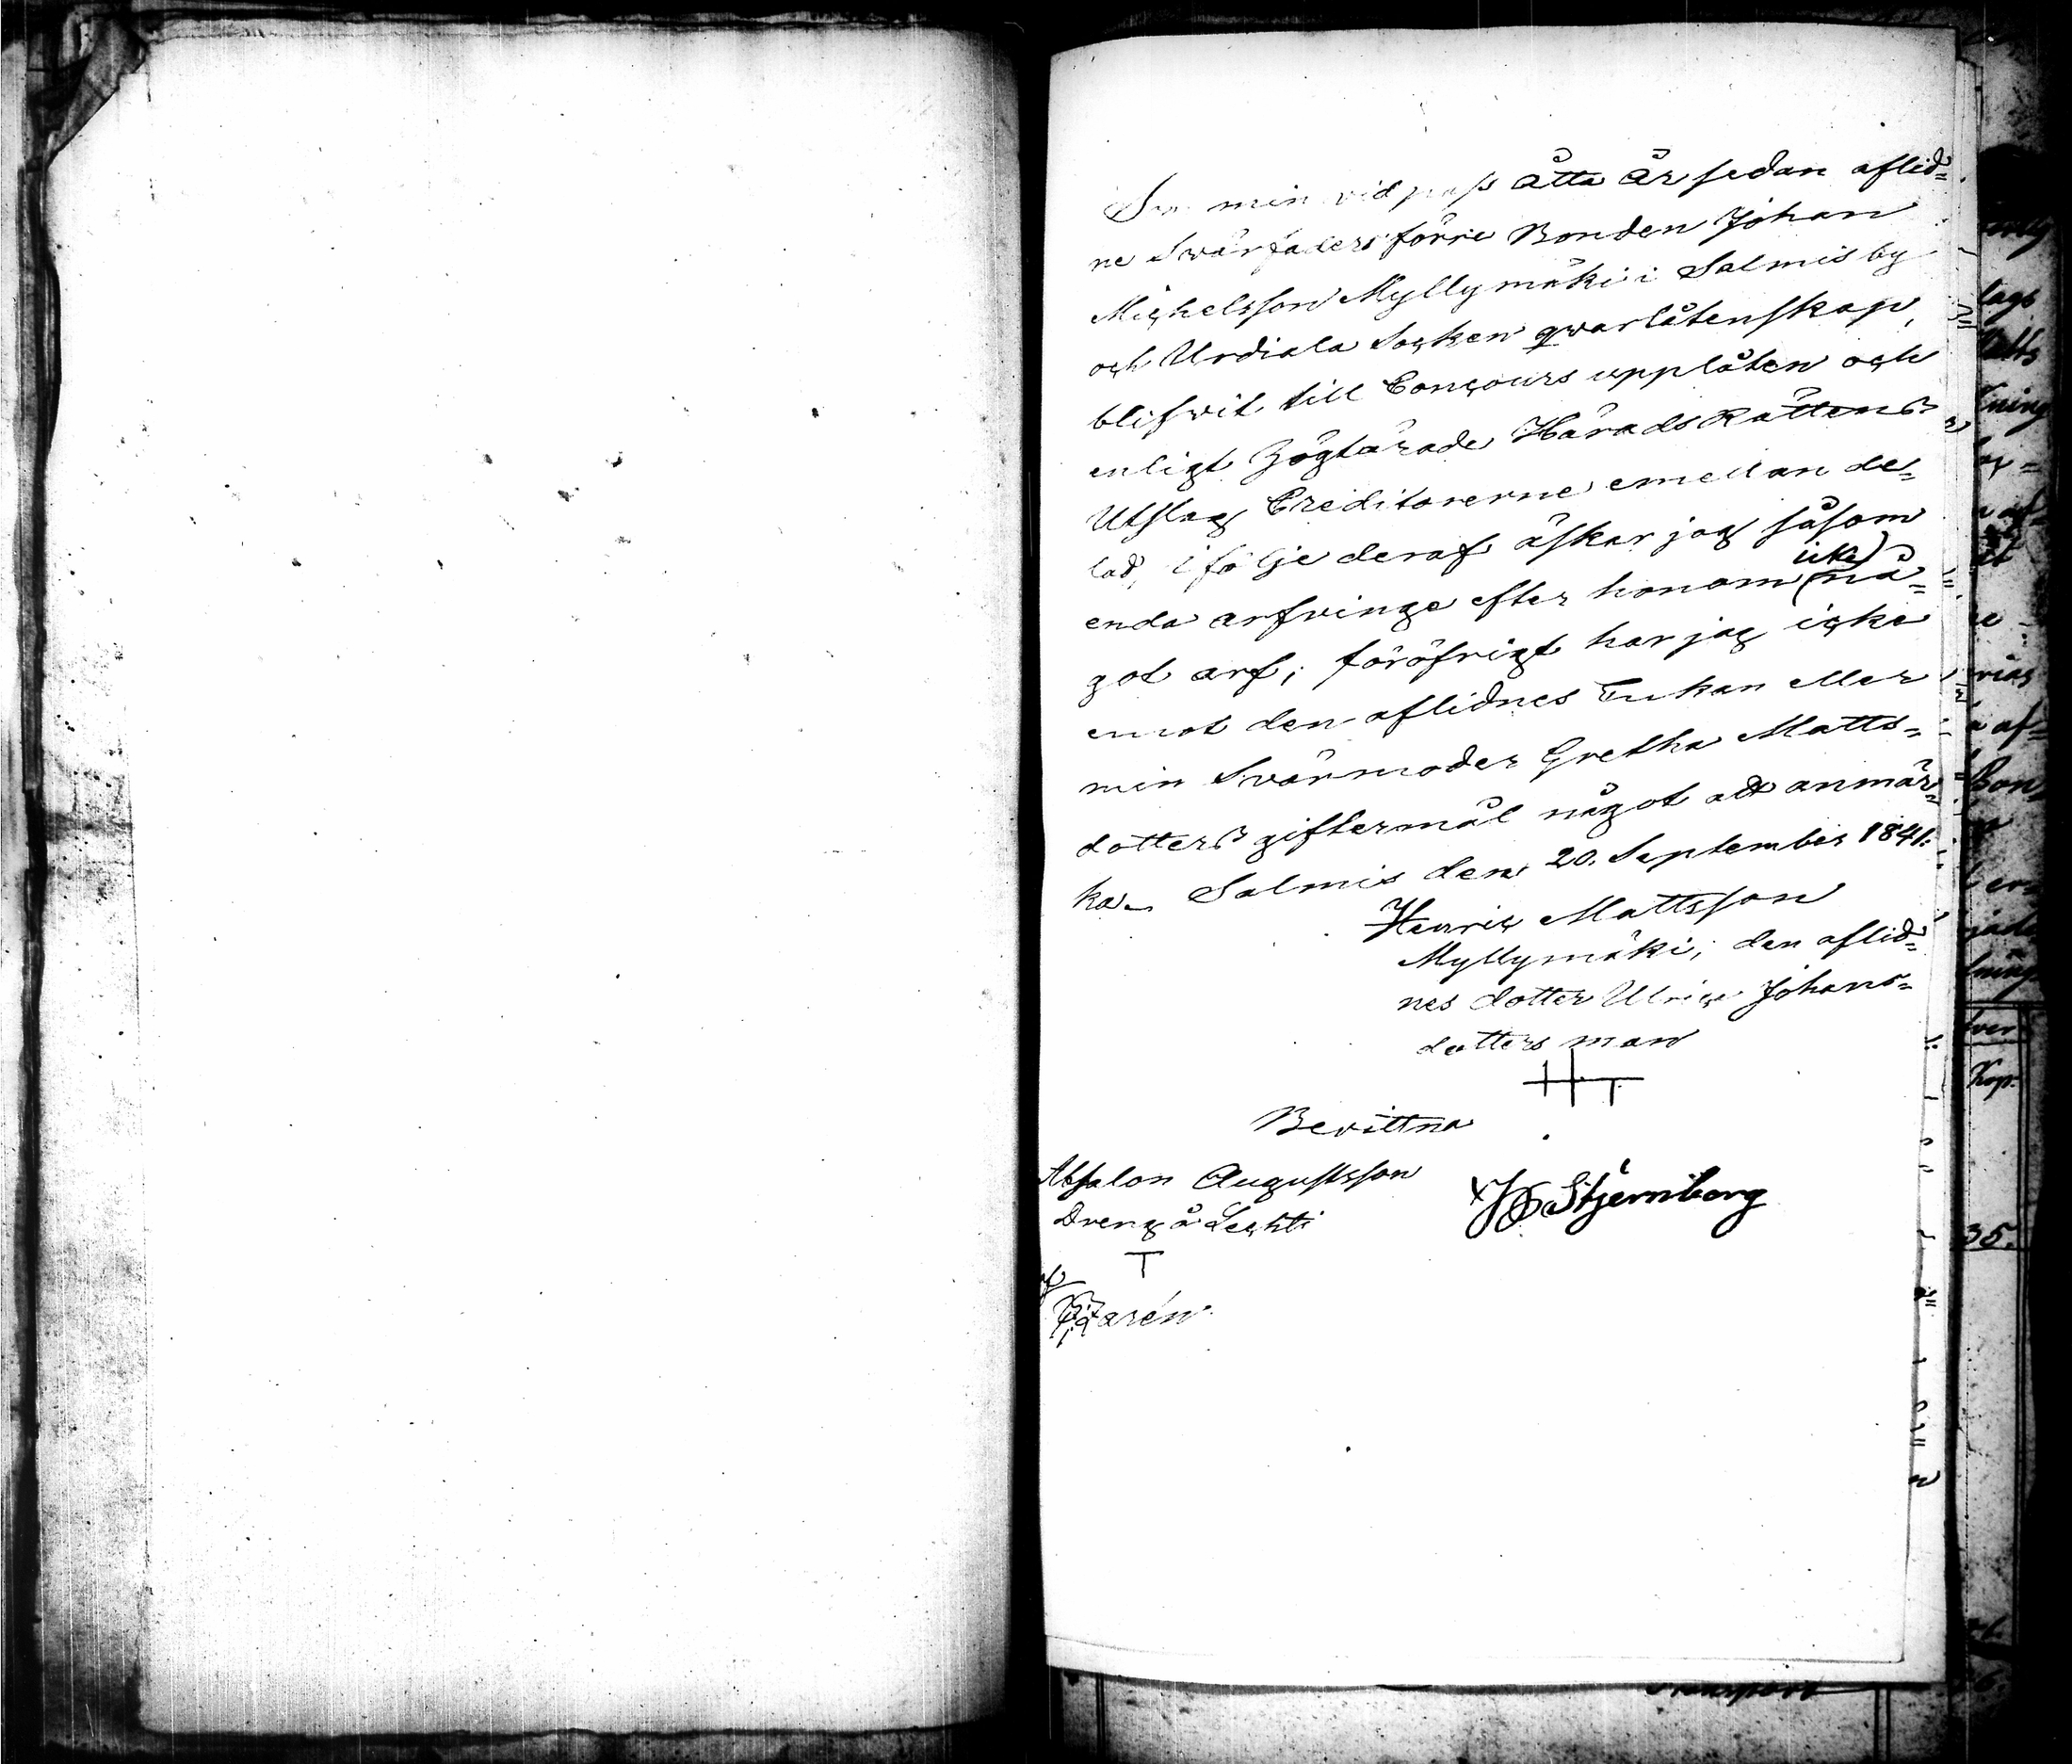 min vid pass åtta år sedan aflid=
ne Svärfaders förre Bonden Johan
Michelsson Myllymäki i Salmis by
och Urdiala Socken qvarlåtenskap,
blifvit till Concours upplåten och
enligt Högtärade HäradsRättens
Utslag Creditorerne emellan de=
lad, i följe deraf äskar jag såsom
enda arfvinge efter honom (icke) nå=
got arf; föröfrigt har jag icke
emot den aflidnes Enkan eller
min Svärmoder Gretha Matts=
dotters giftermål något att anmär=
ka. Salmis den 20. September 1841.
Henric Mattsson
Myllymäki, den aflid=
nes dotter Ulrica Johans=
dotters man
Bevittna
Absalon Augustsson
Dreng å Lechti
T
Stjernberg
af